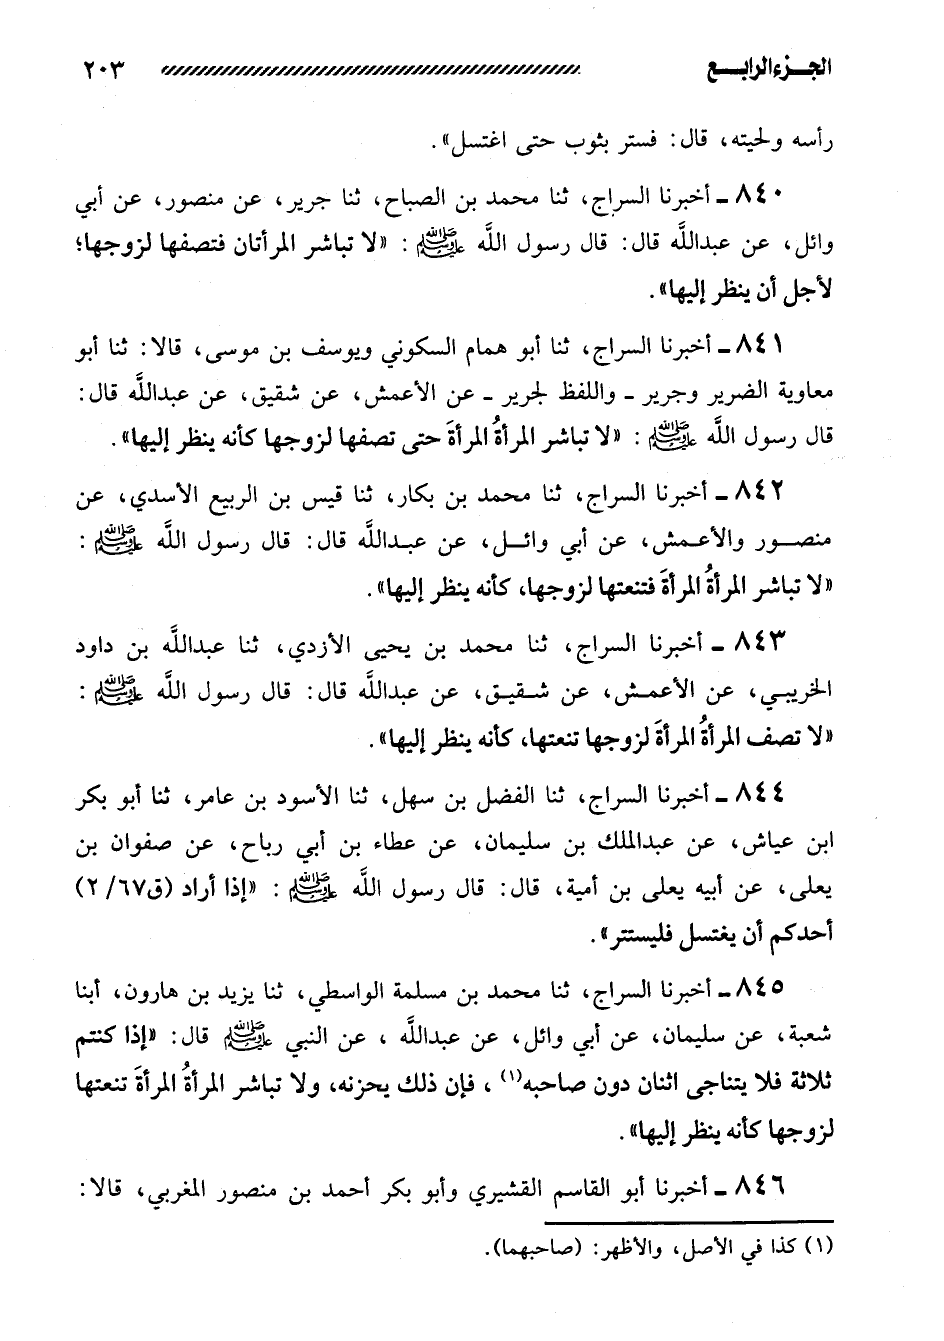 الجزء الرابع ٢٠٣
رأسه ولحيته، قال: فستر بثوب حتى اغتسل».
٨٤٠ ـ أخبرنا السراج، ثنا محمد بن الصباح، ثنا جرير، عن منصور، عن أبي
وائل، عن عبداللَّه قال: قال رسول اللَّه ﷺ : «لا تباشر المرأتان فتصفها لزوجها؛
لأجل أن ينظر إليها».
٨٤١ ـ أخبرنا السراج، ثنا أبو همام السكوني ويوسف بن موسى، قالا: ثنا أبو
معاوية الضرير وجرير ـ واللفظ لجرير ـ عن الأعمش، عن شقيق، عن عبداللَّه قال:
قال رسول اللَّه ﷺ : «لا تباشر المرأةُ المرأةَ حتى تصفها لزوجها كأنه ينظر إليها».
٨٤٢ ـ أخبرنا السراج، ثنا محمد بن بكار، ثنا قيس بن الربيع الأسدي، عن
منصور والأعمش، عن أبي وائل، عن عبداللَّه قال: قال رسول اللَّه ﷺ :
«لا تباشر المرأةُ المرأةَ فتنعتها لزوجها، كأنه ينظر إليها».
٨٤٣ ـ أخبرنا السراج، ثنا محمد بن يحيى الأزدي، ثنا عبداللَّه بن داود
الخريبي، عن الأعمش، عن شقيق، عن عبداللَّه قال: قال رسول اللَّه ﷺ :
«لا تصف المرأةُ المرأةَ لزوجها تنعتها، كأنه ينظر إليها».
٨٤٤ ـ أخبرنا السراج، ثنا الفضل بن سهل، ثنا الأسود بن عامر، ثنا أبو بكر
ابن عياش، عن عبدالملك بن سليمان، عن عطاء بن أبي رباح، عن صفوان بن
يعلى، عن أبيه يعلى بن أمية، قال: قال رسول اللَّه ﷺ : «إذا أراد (ق٦٧/ ٢)
أحدكم أن يغتسل فليستتر».
٨٤٥ ـ أخبرنا السراج، ثنا محمد بن مسلمة الواسطي، ثنا يزيد بن هارون، أبنا
شعبة، عن سليمان، عن أبي وائل، عن عبداللَّه ، عن النبي ﷺ قال: «إذا كنتم
ثلاثة فلا يتناجى اثنان دون صاحبه(١) ، فإن ذلك يحزنه، ولا تباشر المرأةُ المرأةَ تنعتها
لزوجها كأنه ينظر إليها».
٨٤٦ ـ أخبرنا أبو القاسم القشيري وأبو بكر أحمد بن منصور المغربي، قالا:
(١) كذا في الأصل، والأظهر: (صاحبهما).